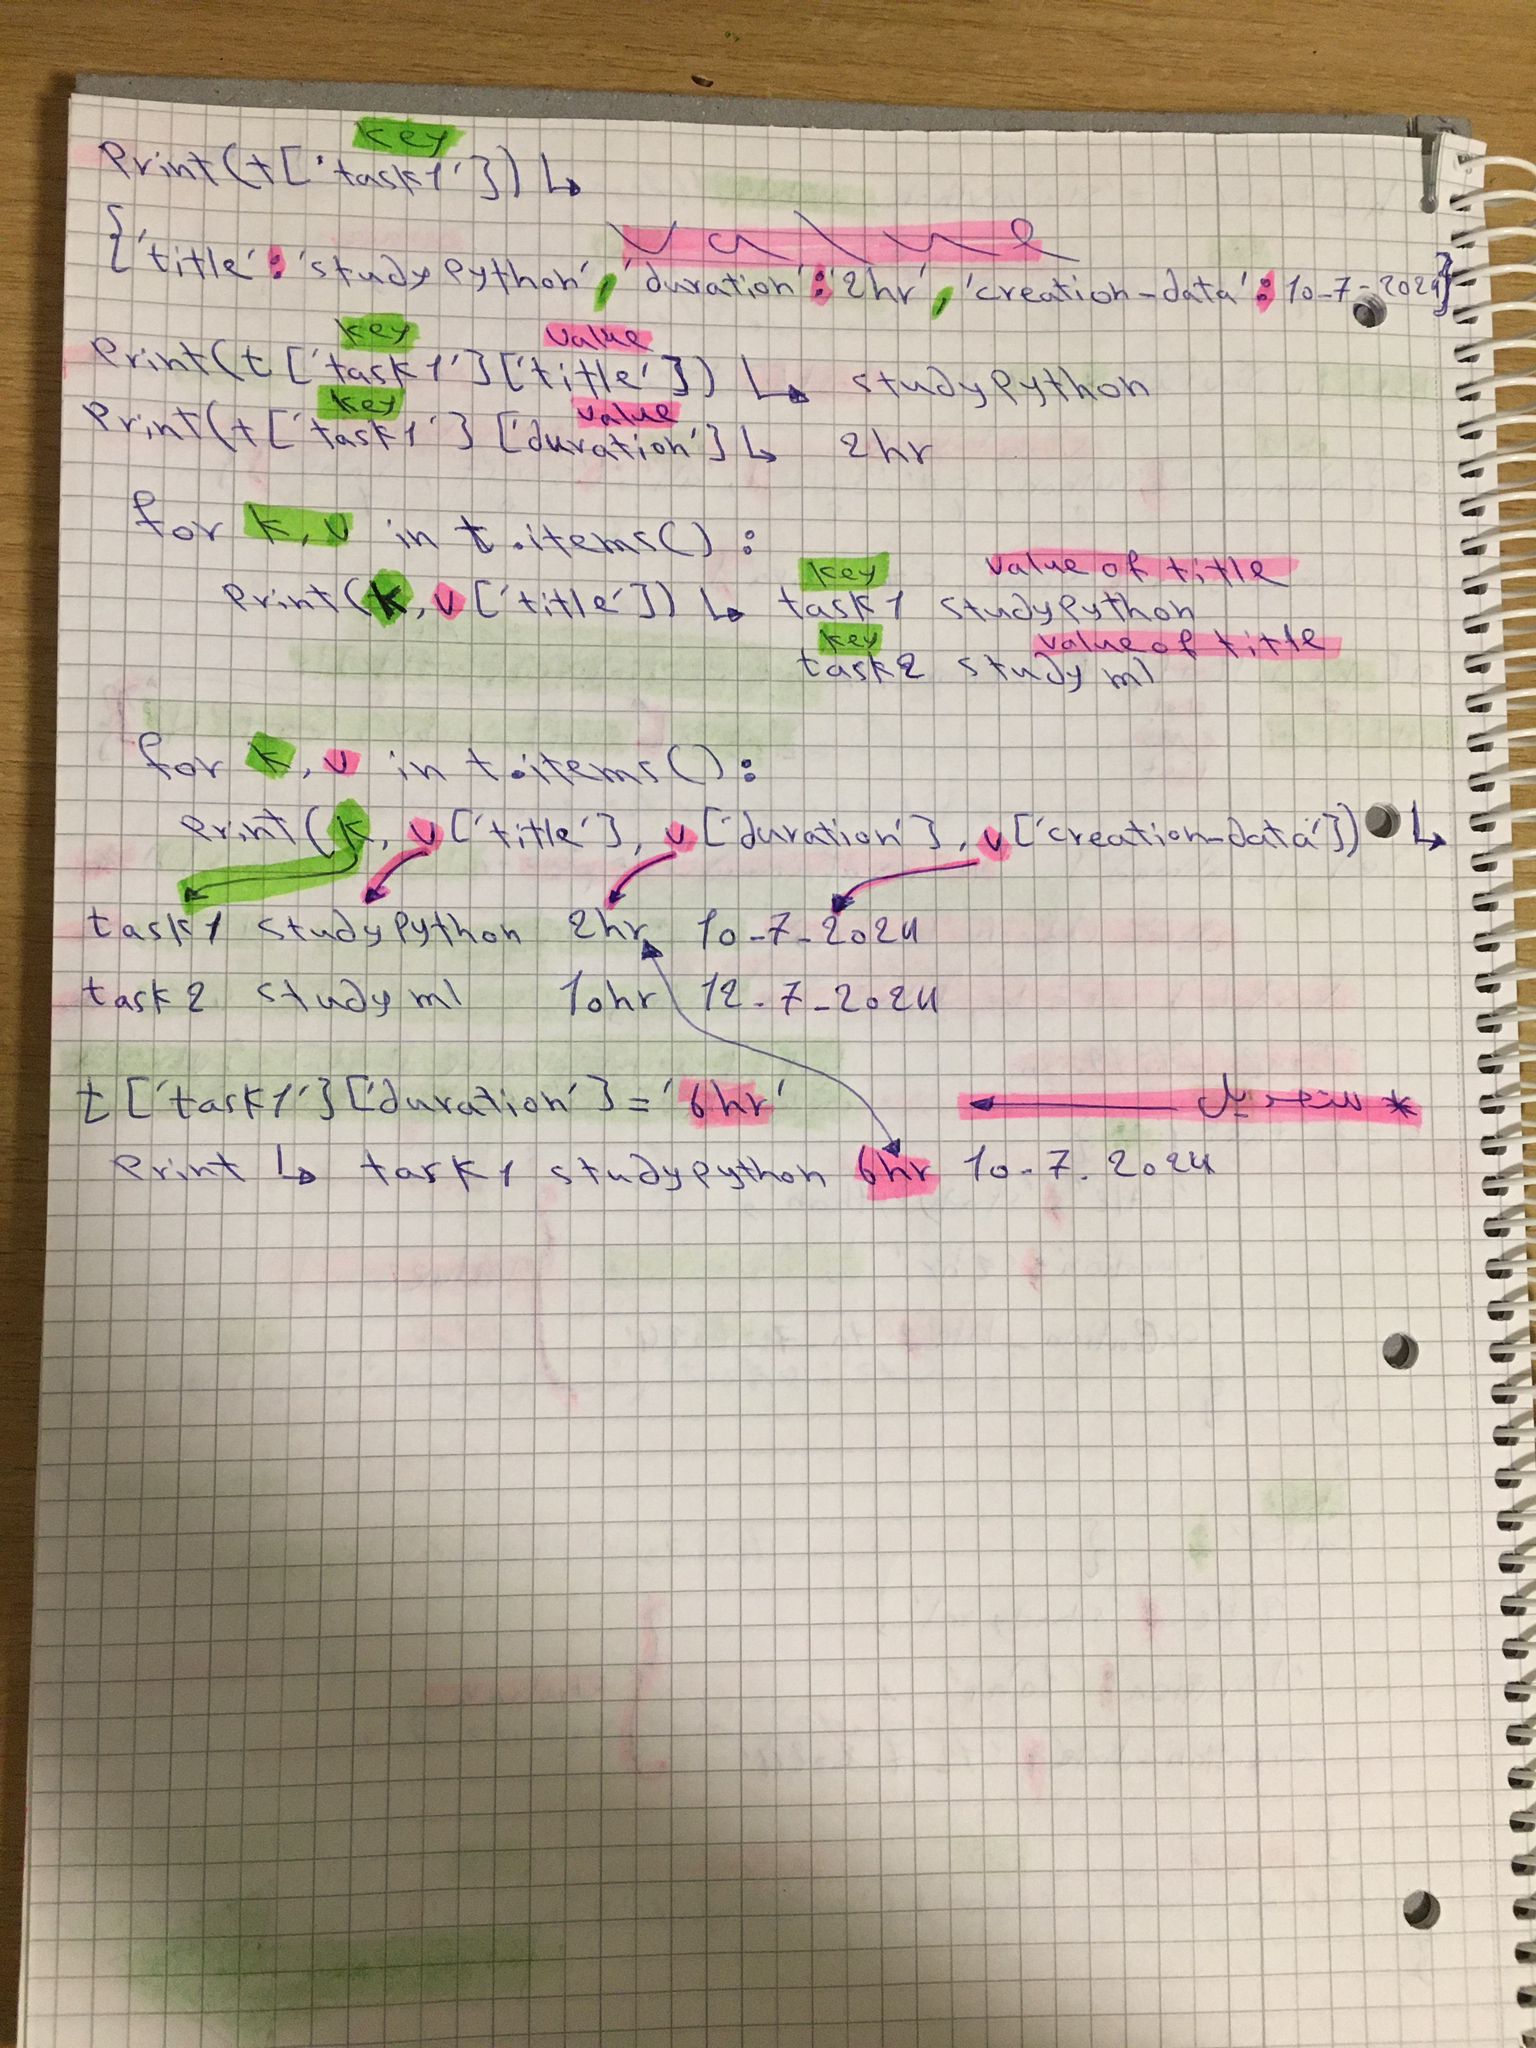 key
Print(t['task1'])↳
value
{'title':'studypython','duration':'2hr','creation-data':10-7-2024}
key value
Print(t['task1']['title'])↳ studypython
key value
Print(t['task1']['duration']↳ 2hr
for k,v in t.items():
key value of title
Print(k,v['title'])↳ task1 studypython
key value of title
task2 study ml
for k,v in t.items():
Print(k, v['title'], v['duration'], v['creation-data'])↳
task1 studypython 2hr 10-7-2024
task2 study ml 10hr 12-7-2024
t['task1']['duration']='6hr' *
Print ↳ task1 studypython 6hr 10-7.2024